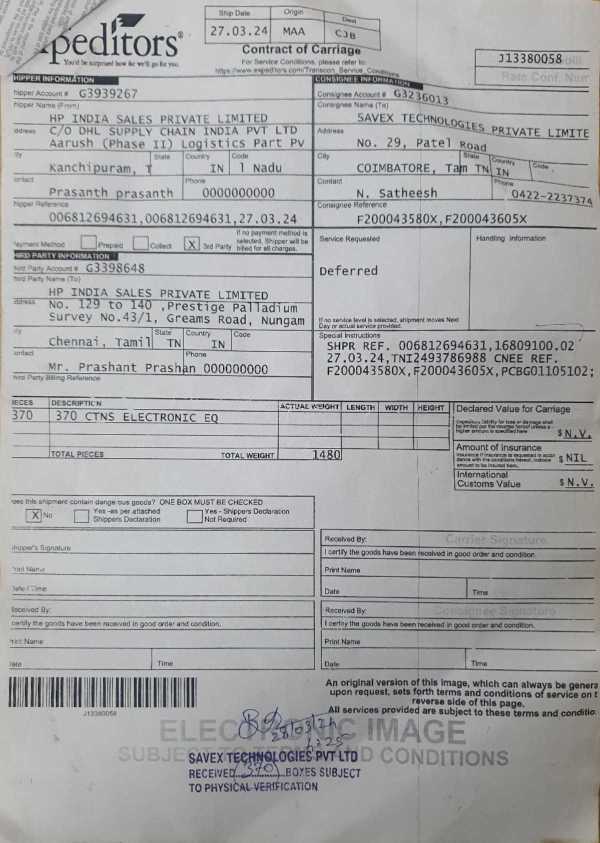 Ship Date Origin Dest
27.03.24 MAA CJB
xpeditors®
You'd be surprised how far we'll go for you.
Contract of Carriage
For Service Conditions, please refer to:
https://www.expeditors.com/Transcon_Service_Conditions
J13380058
Rate Conf. Num
HIPPER INFORMATION
hipper Account # G3939267
hipper Name (From)
HP INDIA SALES PRIVATE LIMITED
ddress C/O DHL SUPPLY CHAIN INDIA PVT LTD
Aarush (Phase II) Logistics Part Pv
ity State Country Code
Kanchipuram, T IN l Nadu
ontact Phone
Prasanth prasanth 0000000000
hipper Reference
006812694631,006812694631,27.03.24
CONSIGNEE INFORMATION
Consignee Account # G3236013
Consignee Name (To)
SAVEX TECHNOLOGIES PRIVATE LIMITE
Address
No. 29, Patel Road
City State Country Code
COIMBATORE, Tam TN IN
Contact Phone
N. Satheesh 0422-2237374
Consignee Reference
F200043580X,F200043605X
ayment Method Prepaid Collect X 3rd Party
If no payment method is
selected, Shipper will be
billed for all charges.
HIRD PARTY INFORMATION
hird Party Account # G3398648
hird Party Name (To)
HP INDIA SALES PRIVATE LIMITED
ddress No. 129 to 140 ,Prestige Palladium
Survey No.43/1, Greams Road, Nungam
ity State Country Code
Chennai, Tamil TN IN
ontact Phone
Mr. Prashant Prashan 000000000
hird Party Billing Reference
Service Requested
Handling Information
Deferred
If no service level is selected, shipment moves Next
Day or actual service provided.
Special Instructions
SHPR REF. 006812694631,16809100.02
27.03.24,TNI2493786988 CNEE REF.
F200043580X,F200043605X,PCBG01105102;
IECES DESCRIPTION ACTUAL WEIGHT LENGTH WIDTH HEIGHT
370 370 CTNS ELECTRONIC EQ
TOTAL PIECES TOTAL WEIGHT 1480
Declared Value for Carriage
$ N.V.
Amount of Insurance
$ NIL
International
Customs Value $ N.V.
oes this shipment contain dangerous goods? ONE BOX MUST BE CHECKED
X No
Yes -as per attached
Shippers Declaration
Yes - Shippers Declaration
Not Required
hipper's Signature
rint Name
ate / Time
eceived By:
certify the goods have been received in good order and condition.
rint Name
ate Time
Received By: Carrier Signature
I certify the goods have been received in good order and condition.
Print Name
Date Time
Received By: Consignee Signature
I certify the goods have been received in good order and condition.
Print Name
Date Time
J13380058
An original version of this image, which can always be genera
upon request, sets forth terms and conditions of service on t
reverse side of this page.
All services provided are subject to these terms and conditio
28/03/24
ELECTRONIC IMAGE
SUBJECT TO TERMS AND CONDITIONS
SAVEX TECHNOLOGIES PVT LTD
RECEIVED (370) BOXES SUBJECT
TO PHYSICAL VERIFICATION